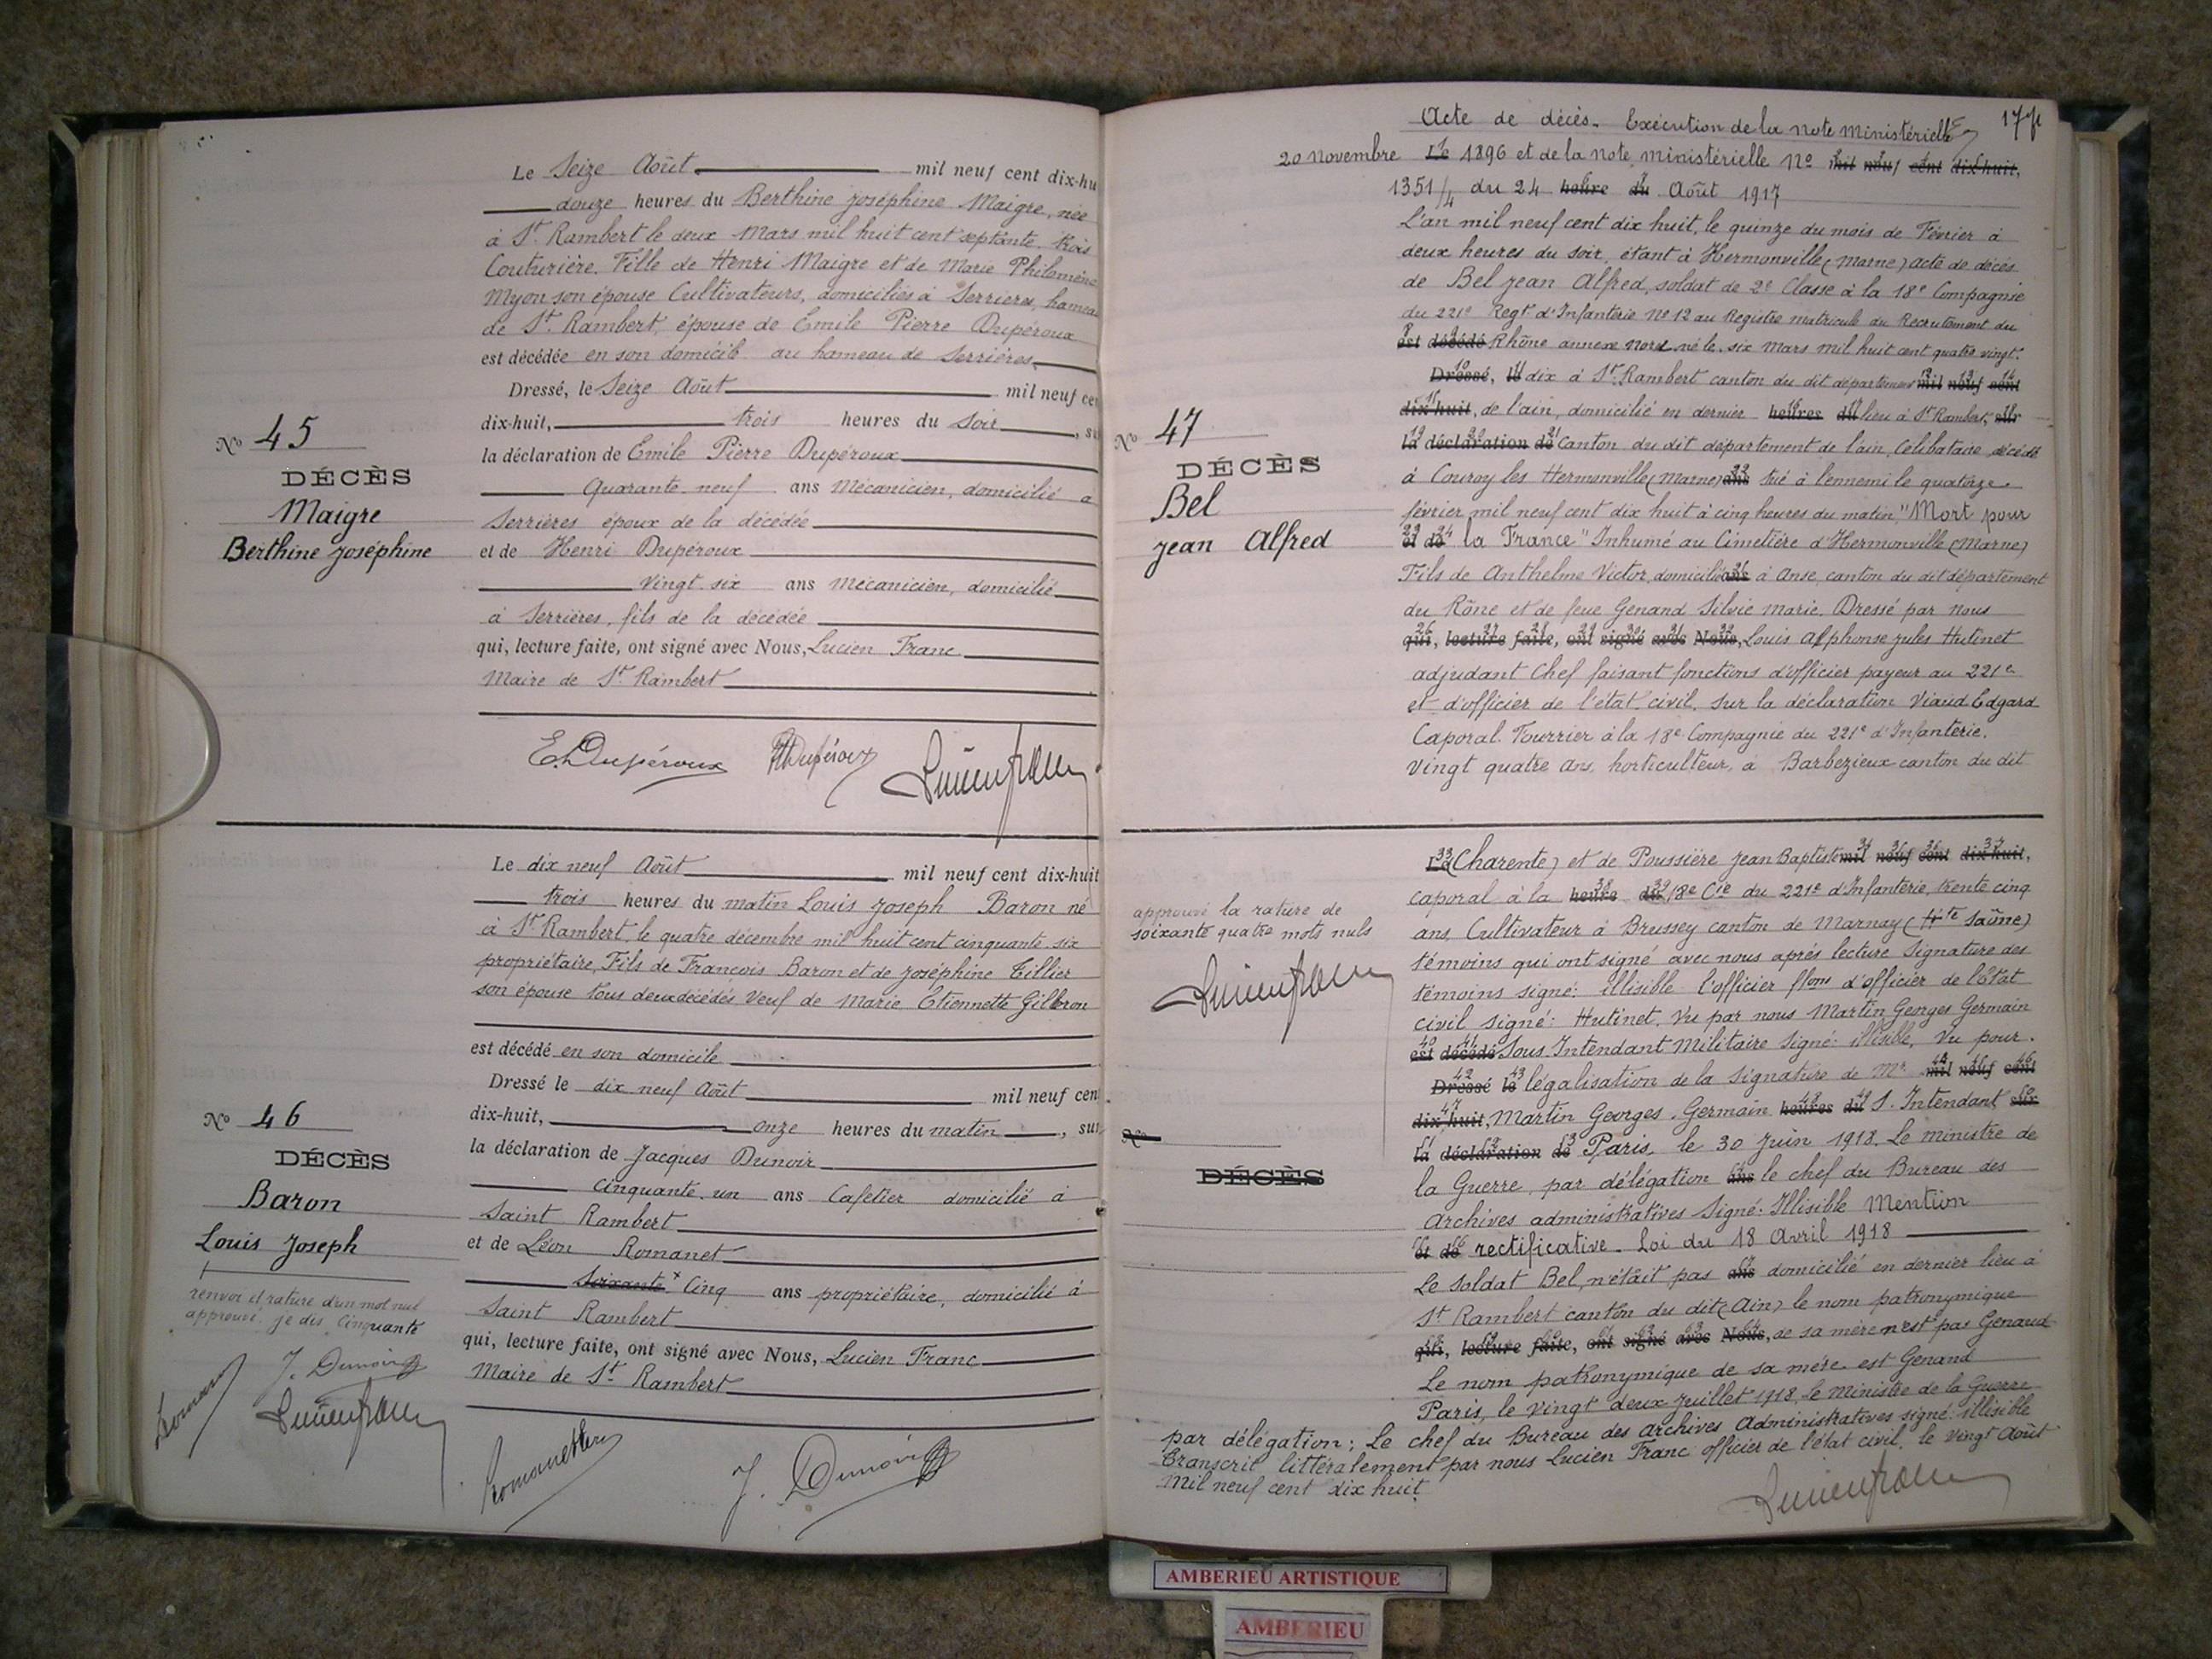 Le Seize Août mil neuf cent dix-hu
douze heures du Berthine Joséphine Maigre, née
à St Rambert le deux Mars mil huit cent septante trois
Couturière. Fille de Henri Maigre et de Marie Philomène
Myon son épouse Cultivateurs, domiciliés à Serrières, hamea
de St. Rambert, épouse de Emile Pierre Dupéroux
est décédée en son domicile au hameau de Serrières
Dressé, le Seize Août mil neuf cen
dix-huit, trois heures du Soir, su
la déclaration de Emile Pierre Dupéroux
Quarante neuf ans Mécanicien, domicilié à
Serrières époux de la décédée
et de Henri Dupéroux
Vingt six ans Mécanicien, domicilié
à Serrières, fils de la décédée
qui, lecture faite, ont signé avec Nous, Lucien Franc
Maire de St. Rambert
No 45
DÉCÈS
Maigre
Berthine Joséphine
E. Dupéroux H Dupéroux Lucien Franc
Le dix neuf Août mil neuf cent dix-huit
trois heures du matin Louis Joseph Baron né
à St. Rambert, le quatre décembre mil huit cent cinquante six
propriétaire, Fils de François Baron et de Joséphine Tillier
son épouse tous deux décédés Veuf de Marie Etiennette Gilbron
est décédé en son domicile
Dressé le dix neuf Août mil neuf cen
dix-huit, onze heures du matin, sur
la déclaration de Jacques Dunoir
Cinquante un ans Cafetier domicilié à
Saint Rambert
et de Léon Romanet
Soixante Cinq ans propriétaire, domicilié à
Saint Rambert
qui, lecture faite, ont signé avec Nous, Lucien Franc
Maire de St. Rambert
No 46
DÉCÈS
Baron
Louis Joseph
renvoi et rature d'un mot nul
approuvé, je dis Cinquante
J. Dunoir
Lucien Franc
J. Dunoir
Acte de décès. Exécution de la note Ministérielle
20 Novembre Le 1896 et de la note ministérielle No mil neuf cent dix-huit,
1351/4 du 24 heure du Août 1917
L'an mil neuf cent dix huit, le quinze du mois de Février à
deux heures du soir, étant à Hermonville (Marne) acte de décès
de Bel Jean Alfred, soldat de 2e Classe à la 18e Compagnie
du 221e Regt d'Infanterie No 12 au Registre matricule du Recrutement du
est décédé Rhône annexe nord né le six Mars mil huit cent quatre vingt.
Dressé, le dix à St. Rambert canton du dit département mil neuf cent
dix huit, de l'ain, domicilié en dernier heures du lieu à St Rambert, sur
la déclaration de Canton du dit département de l'ain, Célibataire, décédé
à Couroy les Hermonville (Marne) ans tué à l'ennemi le quatorze
février mil neuf cent dix huit à cinq heures du matin, "Mort pour
et de la France" Inhumé au Cimetière d'Hermonville (Marne)
Fils de Anthelme Victor, domicilié ans à Anse, canton du dit département
du Rône et de feue Genand Silvie Marie. Dressé par nous
qui, lecture faite, ont signé avec Nous, Louis Alphonse Jules Hutinet
adjudant Chef faisant fonctions d'officier payeur au 221e
et d'officier de l'état civil, sur la déclaration Viaud Edgard
Caporal Fourrier à la 18e Compagnie du 221e d'Infanterie.
Vingt quatre ans, horticulteur, à Barbezieux canton du dit
No 47
DÉCÈS
Bel
Jean Alfred
Le (Charente) et de Poussière Jean Baptiste mil neuf cent dix huit,
Caporal à la heure du 18e Cie du 221e d'Infanterie, trente cinq
ans, Cultivateur à Brussey canton de Marnay (Hte Saône)
témoins qui ont signé avec nous après lecture Signature des
témoins signé: illisible l'officier fons d'officier de l'Etat
civil signé: Hutinet. Vu par nous Martin Georges Germain
est décédé Sous Intendant Militaire Signé: illisible, Vu pour
Dressé le légalisation de la Signature de Mr mil neuf cent
dix huit, Martin Georges Germain heures du S. Intendant sur
la déclaration de Paris, le 30 Juin 1918. Le ministre de
la Guerre, par délégation ans le chef du Bureau des
Archives administratives Signé: Illisible Mention
et de rectificative. Loi du 18 Avril 1918
Le Soldat Bel, n'était pas ans domicilié en dernier lieu à
St Rambert canton du dit (Ain) le nom patronymique
qui, lecture faite, ont signé avec Nous, de sa mère n'est pas Genaud
Le nom patronymique de sa mère est Genand
Paris, le vingt deux Juillet 1918, Le Ministre de la Guerre
par délégation; Le chef du Bureau des Archives Administratives signé: illisible
Transcrit littéralement par nous Lucien Franc officier de l'état civil, le Vingt Août
Mil neuf cent dix huit
Lucien Franc
approuvé la rature de
soixante quatre mots nuls
Lucien Franc
No
DÉCÈS
AMBERIEU ARTISTIQUE
AMBERIEU